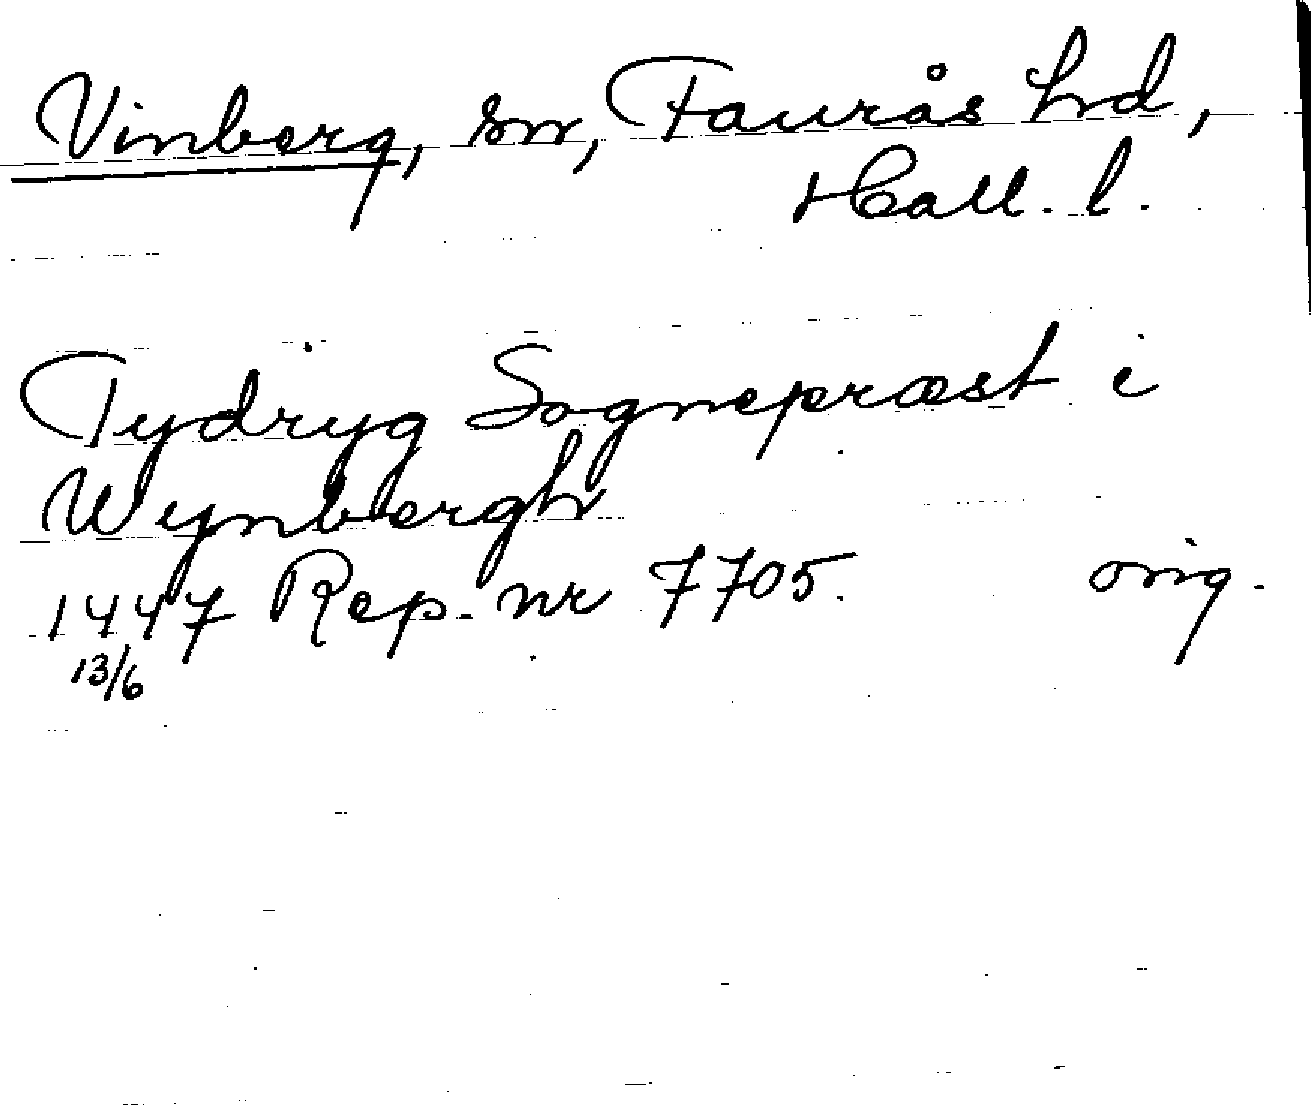 Vinberg, sn, Faurås hd,
Hall. l.
Tydryg Sognepræst i
Wynbergh
1447 Rep. nr 7705. orig.
13/6